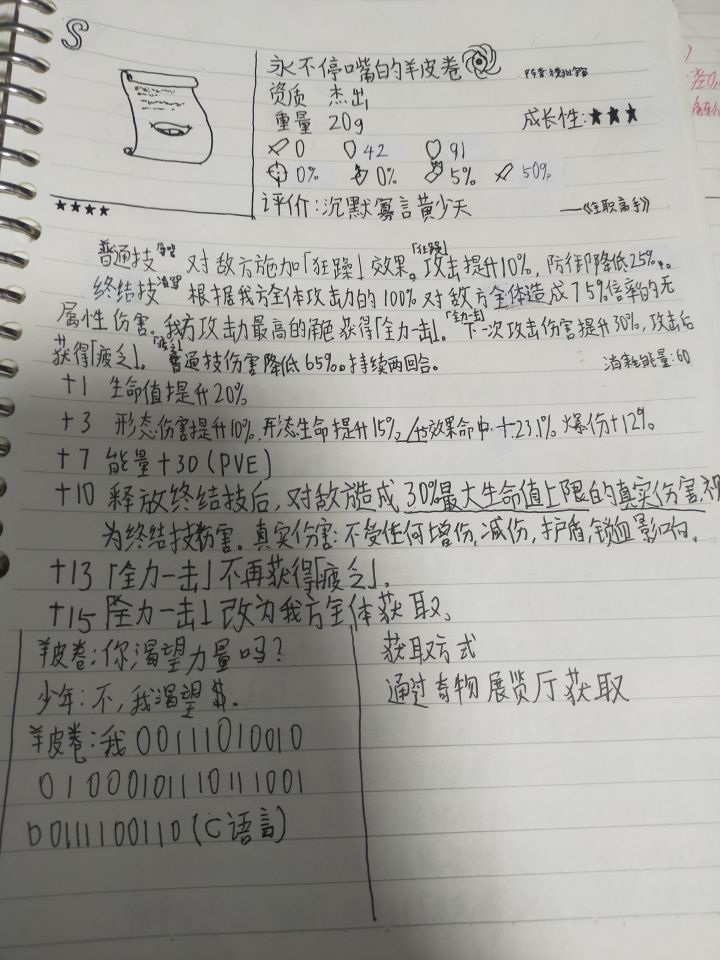 S
永不停嘴的羊皮卷
资质 杰出
重量 20g
成长性:★★★
0 42 91
0% 0% 5% 50%
★★★★
评价:沉默寡言黄少天 ——《全职高手》
普通技 对敌方施加「狂躁」效果。「狂躁」攻击提升10%,防御降低25%。
终结技 根据我方全体攻击力的100%对敌方全体造成75%倍率的无
属性伤害。我方攻击力最高的角色获得「全力一击」。「全力一击」下一次攻击伤害提升30%,攻击后
获得「疲乏」。「疲乏」普通技伤害降低65%。持续两回合。 消耗能量:60
+1 生命值提升20%
+3 形态伤害提升10%,形态生命提升15%。效果命中+23.1% 爆伤+12%
+7 能量+30(PVE)
+10 释放终结技后,对敌方造成30%最大生命值上限的真实伤害,视
为终结技伤害。真实伤害:不受任何增伤,减伤,护盾,锁血影响。
+13「全力一击」不再获得「疲乏」。
+15「全力一击」改为我方全体获取。
羊皮卷:你渴望力量吗?
少年:不,我渴望$。
羊皮卷:我00111010010
01000101110111001
00111100110(C语言)
获取方式
通过奇物展览厅获取